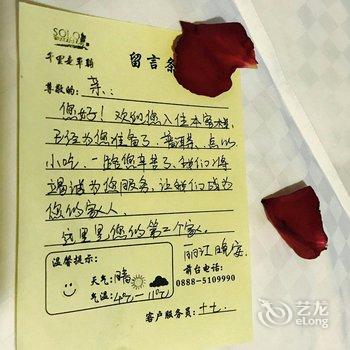 SOLO
千里走单骑
留言条
尊敬的:亲:
您好!欢迎您入住本客栈,
已经为您准备了:普洱茶、点心
小吃,一路您辛苦了,我们将
竭诚为您服务,让我们成为
您的家人,
这里是您的第二个家。
丽江晚安
温馨提示:
天气:晴
气温:4℃-11℃
前台电话:
0888-5109990
客户服务员:
艺龙
eLong